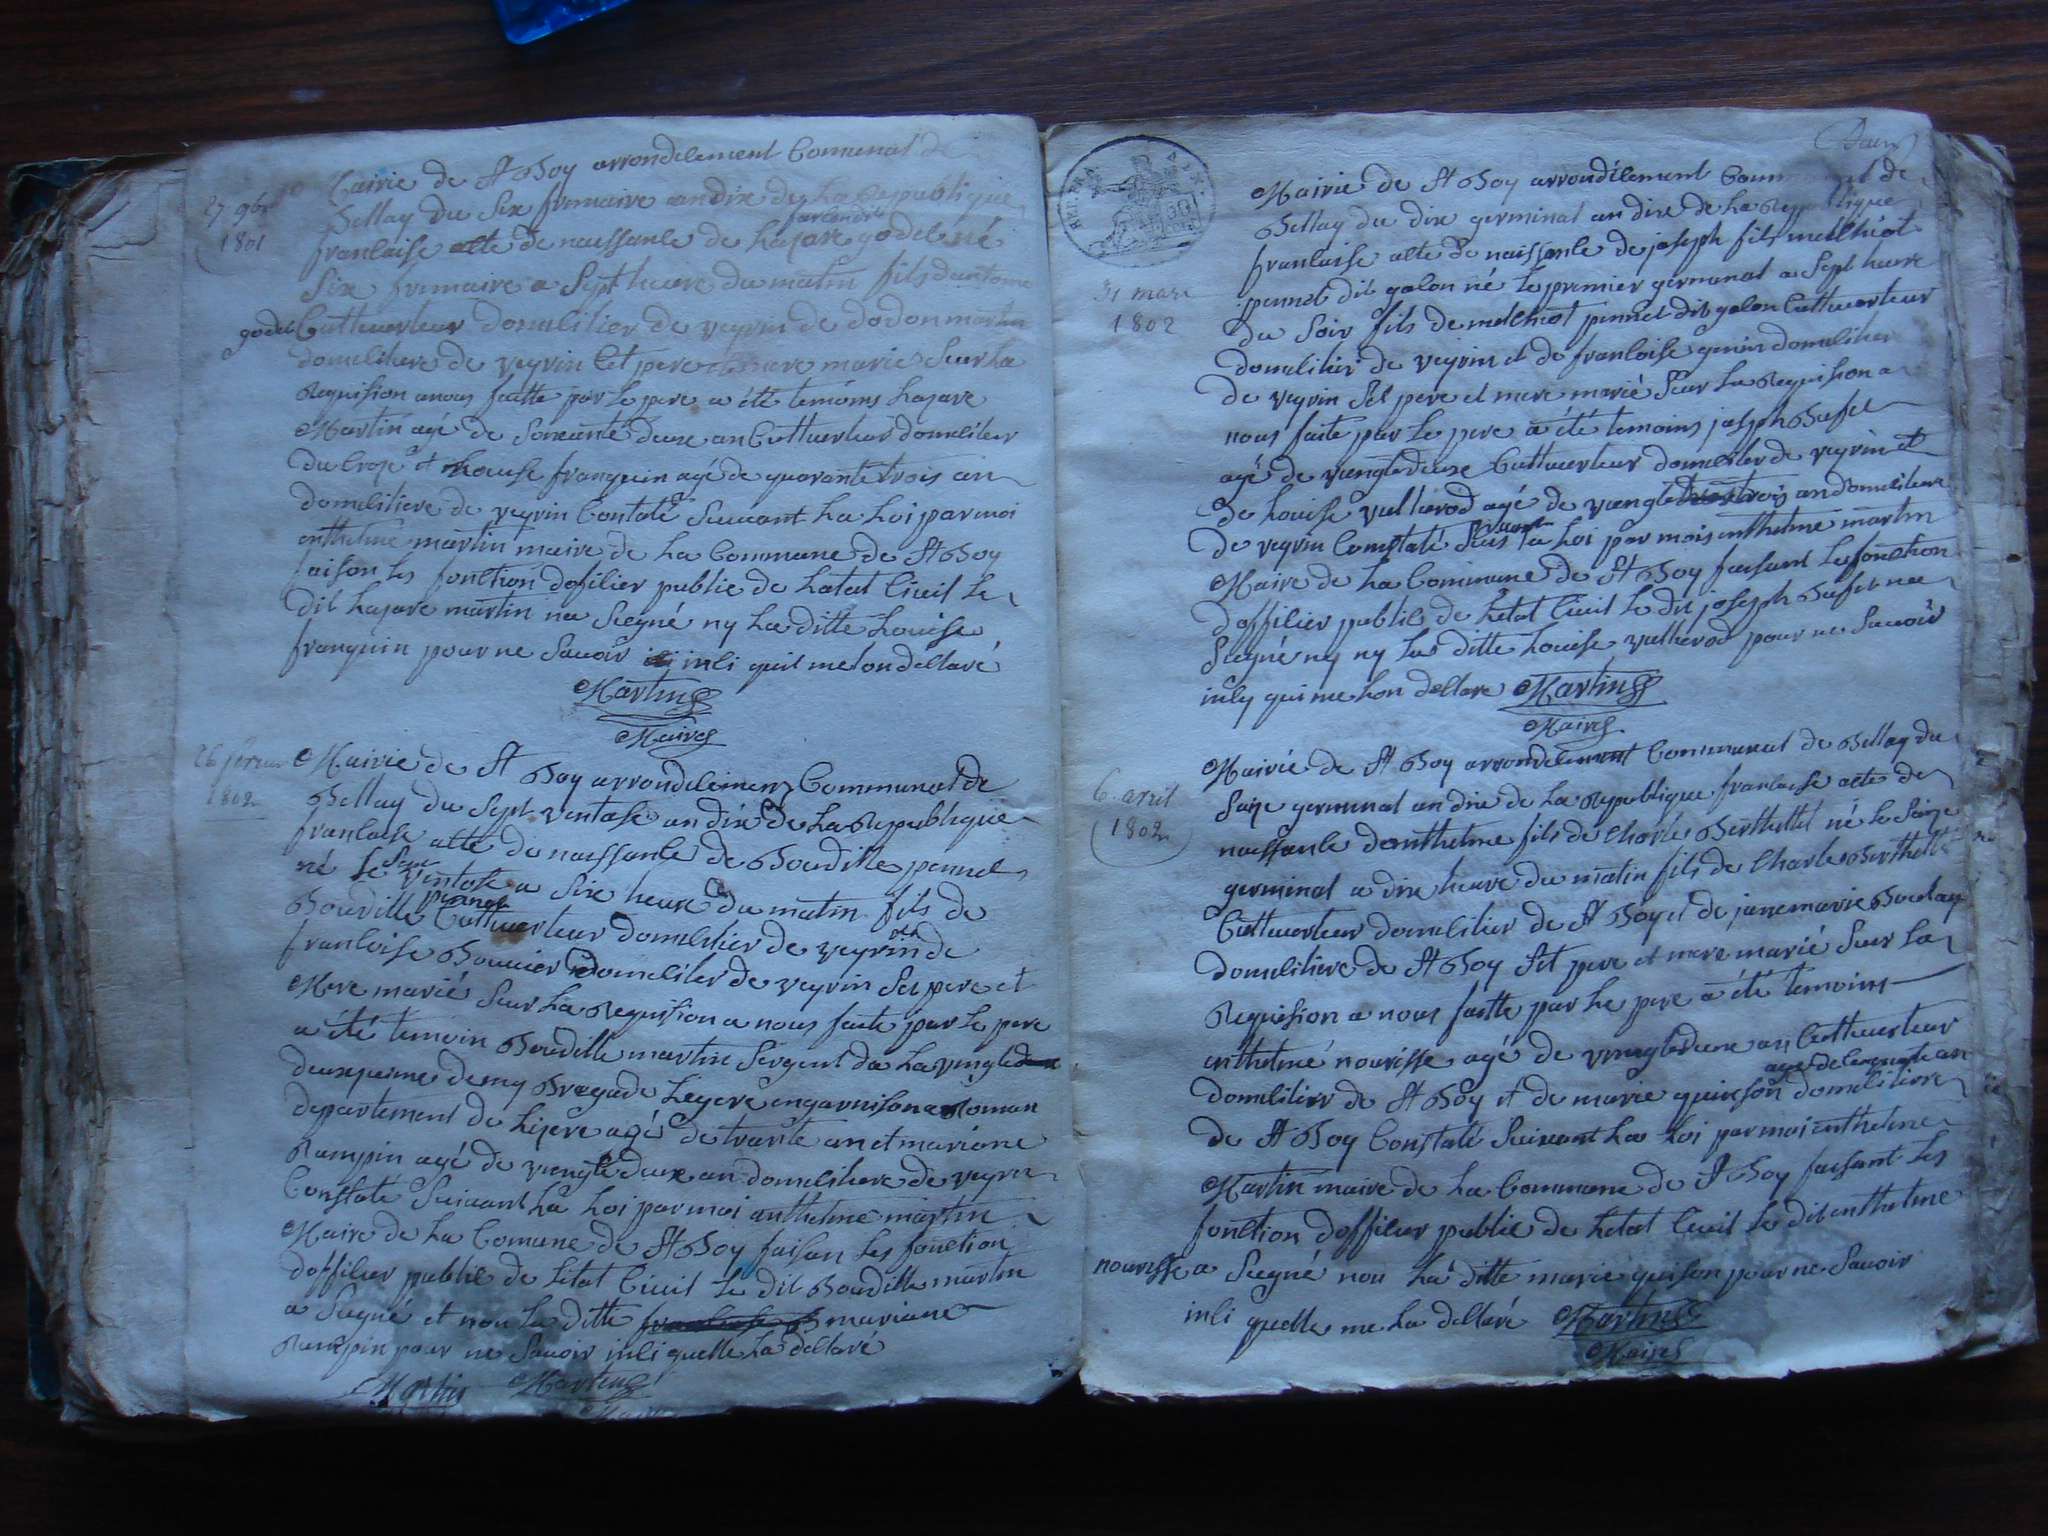 27 9bre
1801
Mairie de St Boy arrondicement Communal de
Bellay du Six frimaire an dix de La Republique
francaise acte de naissance de Lazare godel né
Six frimaire a Sept heure du matin fils dantoine
godel Cultuerteur domicilier de veyrin de dodon martin
domiciliere de veyrin Cet pere et mere marie Sur La
Requision anous faitte par Le pere a été temoins Lazare
Martin agé de Soixante deux an Cultuerteur domicilier
du Croze et Louise franquin agé de quarante trois an
domiciliere de veyrin Contaté Suivant La Loi par moi
anthelme martin maire de La Commune de St Boy
faison les fonction dofficier public de Latat Civil Le
dit Lazare martin na Siegné ny La ditte Louise
franquin pour ne Savoir inci quil me lon declaré
Martin
Maire
26 fevrier
1802
Mairie de St Boy arrondicement Communal de
Bellay du Sept ventose an dix de La Republique
francaise acte de naissance de Boudille pennel
né Le Sept ventose a Six heure du matin fils de
Boudille pennel Cultuerteur domicilier de veyrin et de
francoise Bouvier domicilier de veyrin Set pere et
Mere marié Sur La Requision a nous faite par Le pere
a été temoin Boudille martin Sergent da La vingt
deuxieme demy Bregade Legere engarnison a Roman
deppartement de Lizere agé de trante an et mariane
Rampin agé de vengt deux an domiciliere de veyrin
Constaté Suivant La Loi par moi anthelme martin
Maire de La Comune de St Boy faisan Les fonction
dofficier public de Letat Civil Le dit Boudille martin
a Siegné et non La ditte mariane
Rampin pour ne Savoir inci quelle La declaré
Martin Martin
Maire
REP. FRA.
31 mars
1802
Mairie de St Boy arrondicement Communal de
Bellay du dix germinal an dix de La Republique
francaise acte de naissance de joseph fils melchiot
pennel dit galon né Le premier germinal a Sept heure
du Soir fils de melchiot pennel dit galon Cultuerteur
domicilier de veyrin et de francoise genin domicilier
de veyrin Set pere et mere marié Sur La Requision a
nous faite par Le pere a été temoins joseph Bufet
agé de vengt deux Cultuerteur domicilier de veyrin et
de Louise vullierod agé de vengt trois an domiciliere
de veyrin Constaté Suivant La Loi par mois anthelme martin
Maire de La Commune de St Boy faisant Les fonction
dofficier public de Letat Civil Le dit joseph Bufet na
Siegné ny ny La ditte Louise vullierod pour ne Savoir
incy qui me Lon declare Martin
Maire
6 avril
1802
Mairie de St Boy arrondicement Communal de Bellay du
Saize germinal an dix de La Republique francaise acte de
naissance danthelme fils de Charle Berthellet né Le Saize
germinal a dix heure du matin fils de Charle Berthellet
Cultuerteur domicilier de St Boy et de jane marie Boulay
domiciliere de St Boy Set pere et mere marié Sur La
Requision a nous faitte par Le pere a été temoins
anthelme nourisse agé de vengt deux an Cultuerteur
domicilier de St Boy et de marie quinson domiciliere
de St Boy Constaté Suivant La Loi par moi anthelme
Martin maire de La Commune de St Boy faisant Les
fonction dofficier public de Letat Civil Le dit anthelme
nourisse a Siegné non La ditte marie quison pour ne Savoir
inci quelle me La declaré Martin
Maire